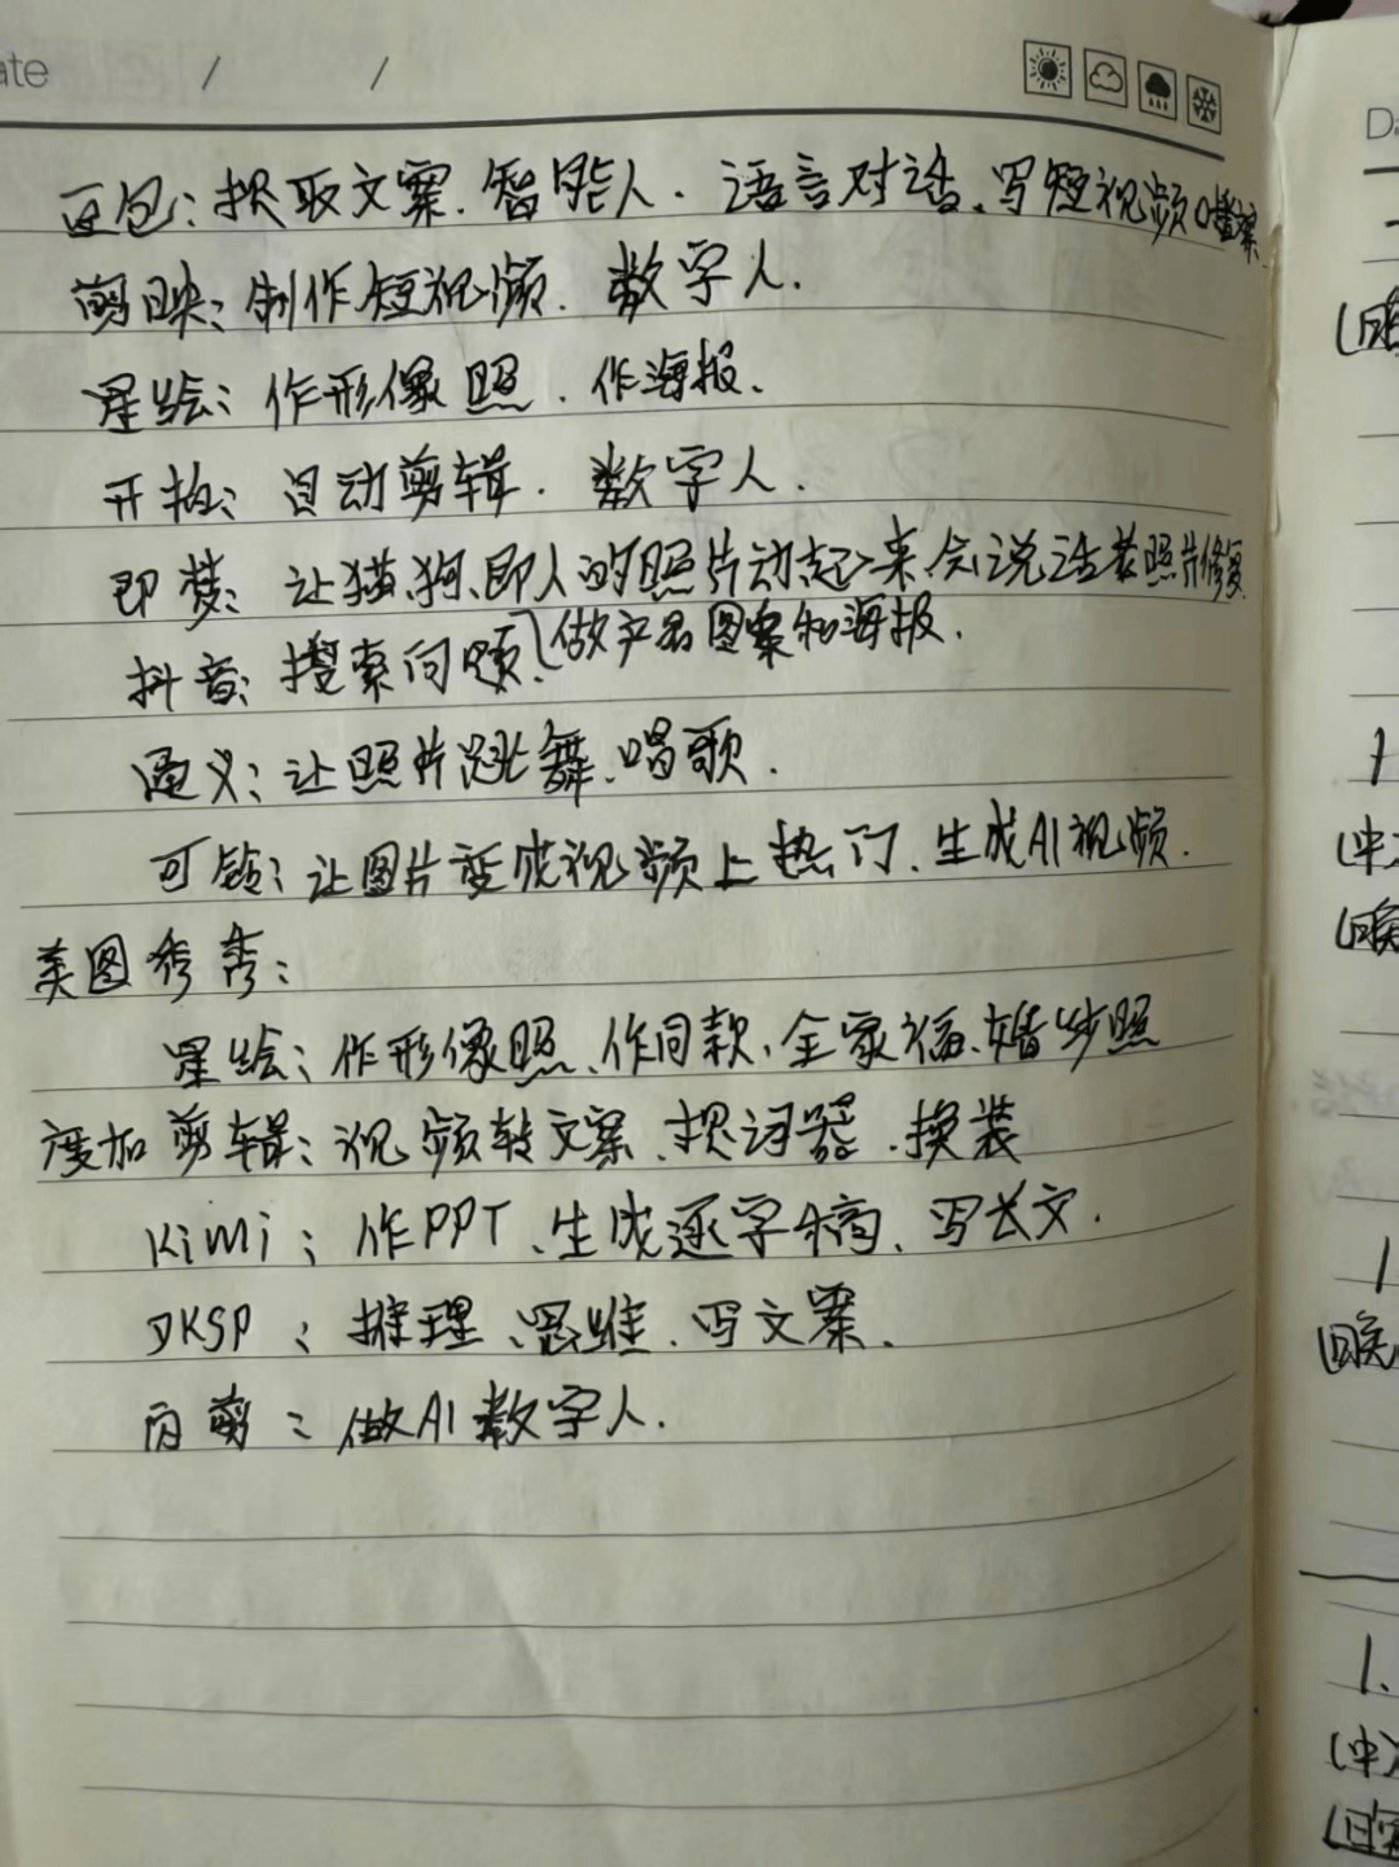 ate / /
豆包：提取文案.智能人.语言对话、写短视频口播文案.
剪映：制作短视频.数字人.
星绘：作形像照.作海报、
开拍：自动剪辑.数字人.
即梦：让猫、狗、即人的照片动起来、会说话老照片修复
做产品图案和海报.
抖音：搜索问题、
通义：让照片跳舞、唱歌.
可铃：让图片变成视频上热门、生成AI视频.
美图秀秀：
星绘：作形像照、作同款、全家福、婚纱照
度加剪辑：视频转文案.提词器.换装
Kimi：作PPT、生成逐字稿、写长文.
DKSP：推理、思维.写文案.
闪剪：做AI数字人.